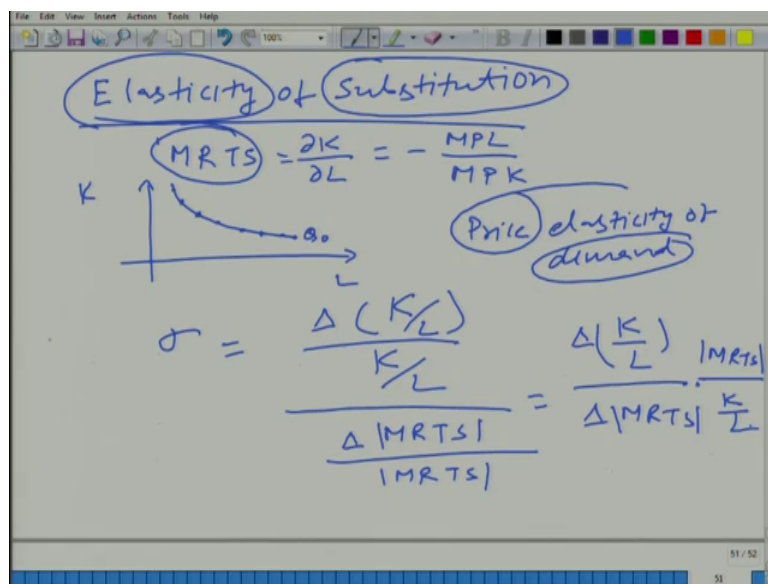 File Edit View Insert Actions Tools Help
100%
B I
Elasticity of Substitution
MRTS = ∂K/∂L = - MPL/MPK
K
Q₀
L
Price elasticity of
demand
σ = (Δ(K/L) / (K/L)) / (Δ|MRTS| / |MRTS|) = Δ(K/L) / Δ|MRTS| · |MRTS| / (K/L)
51 / 52
51